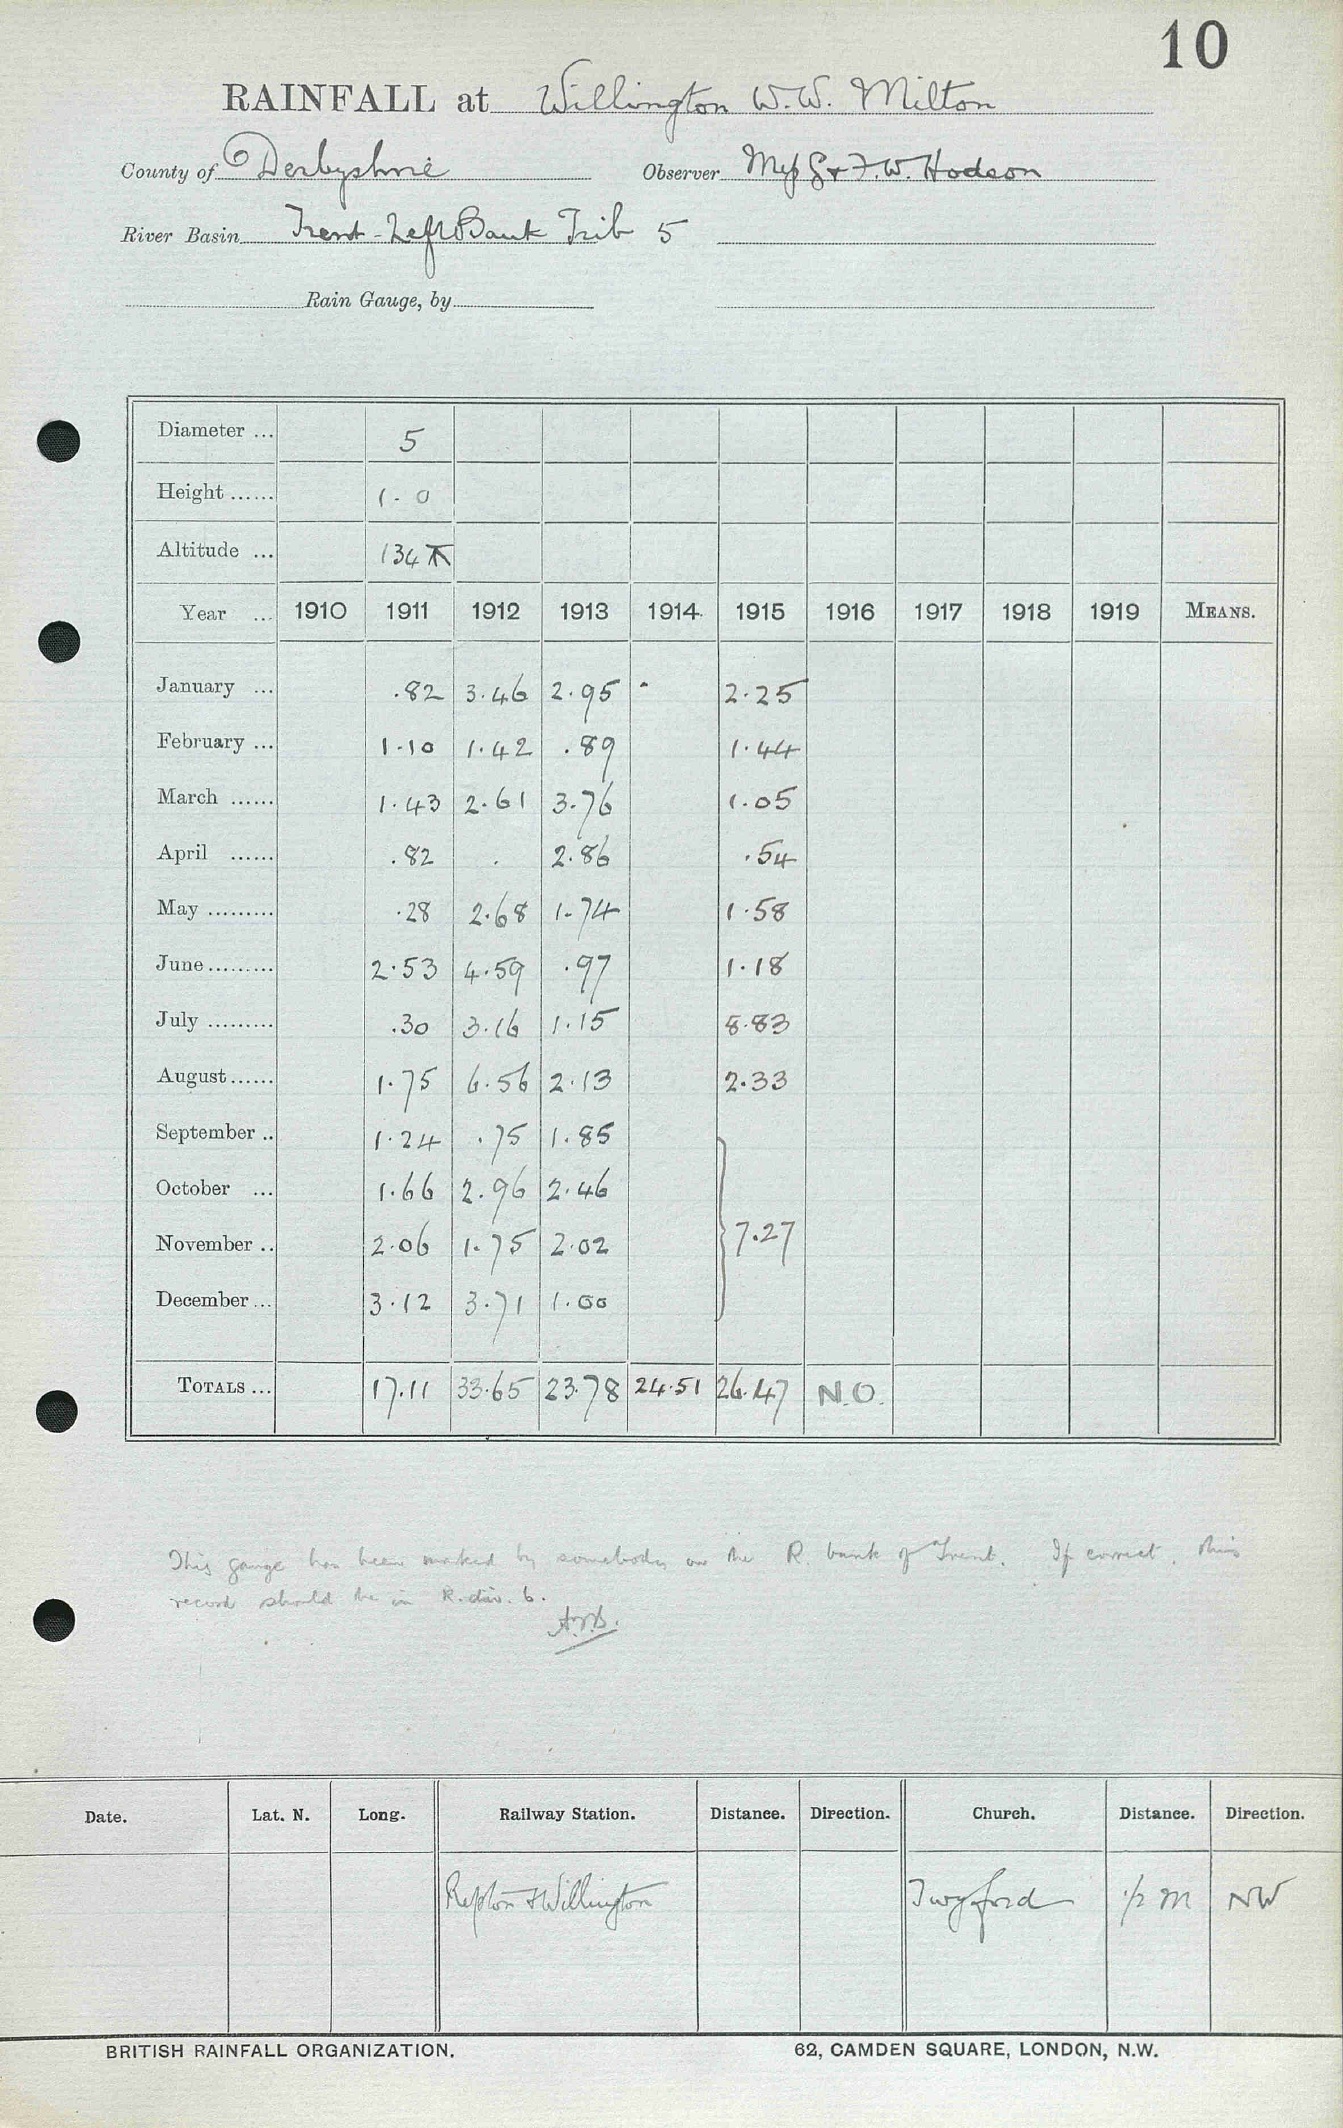 10
RAINFALL at Willington W.W. Milton
County of Derbyshire Observer Mess G & F.W. Hodson
River Basin Trent - Left Bank Trib 5
Rain Gauge, by
Diameter ... 5
Height ...... 1 - 0
Altitude ... 134
Year ... 1910 1911 1912 1913 1914 1915 1916 1917 1918 1919 MEANS.
January ... .82 3.46 2.95 - 2.25
February ... 1.10 1.42 .89 1.44
March ...... 1.43 2.61 3.76 1.05
April ...... .82 . 2.86 .54
May ......... .28 2.68 1.74 1.58
June ......... 2.53 4.59 .97 1.18
July ......... .30 3.16 1.15 8.83
August ...... 1.75 6.56 2.13 2.33
September .. 1.24 .75 1.85
October ... 1.66 2.96 2.46
November .. 2.06 1.75 2.02 7.27
December ... 3.12 3.71 1.00
TOTALS ... 17.11 33.65 23.78 24.51 26.47 N.O.
This gauge has been marked by somebody on the R. bank of Trent. If correct, this
record should be in R. div. 6.
Date. Lat. N. Long. Railway Station. Distance. Direction. Church. Distance. Direction.
Repton & Willington Twyford 1/2 m NW
BRITISH RAINFALL ORGANIZATION. 62, CAMDEN SQUARE, LONDON, N.W.